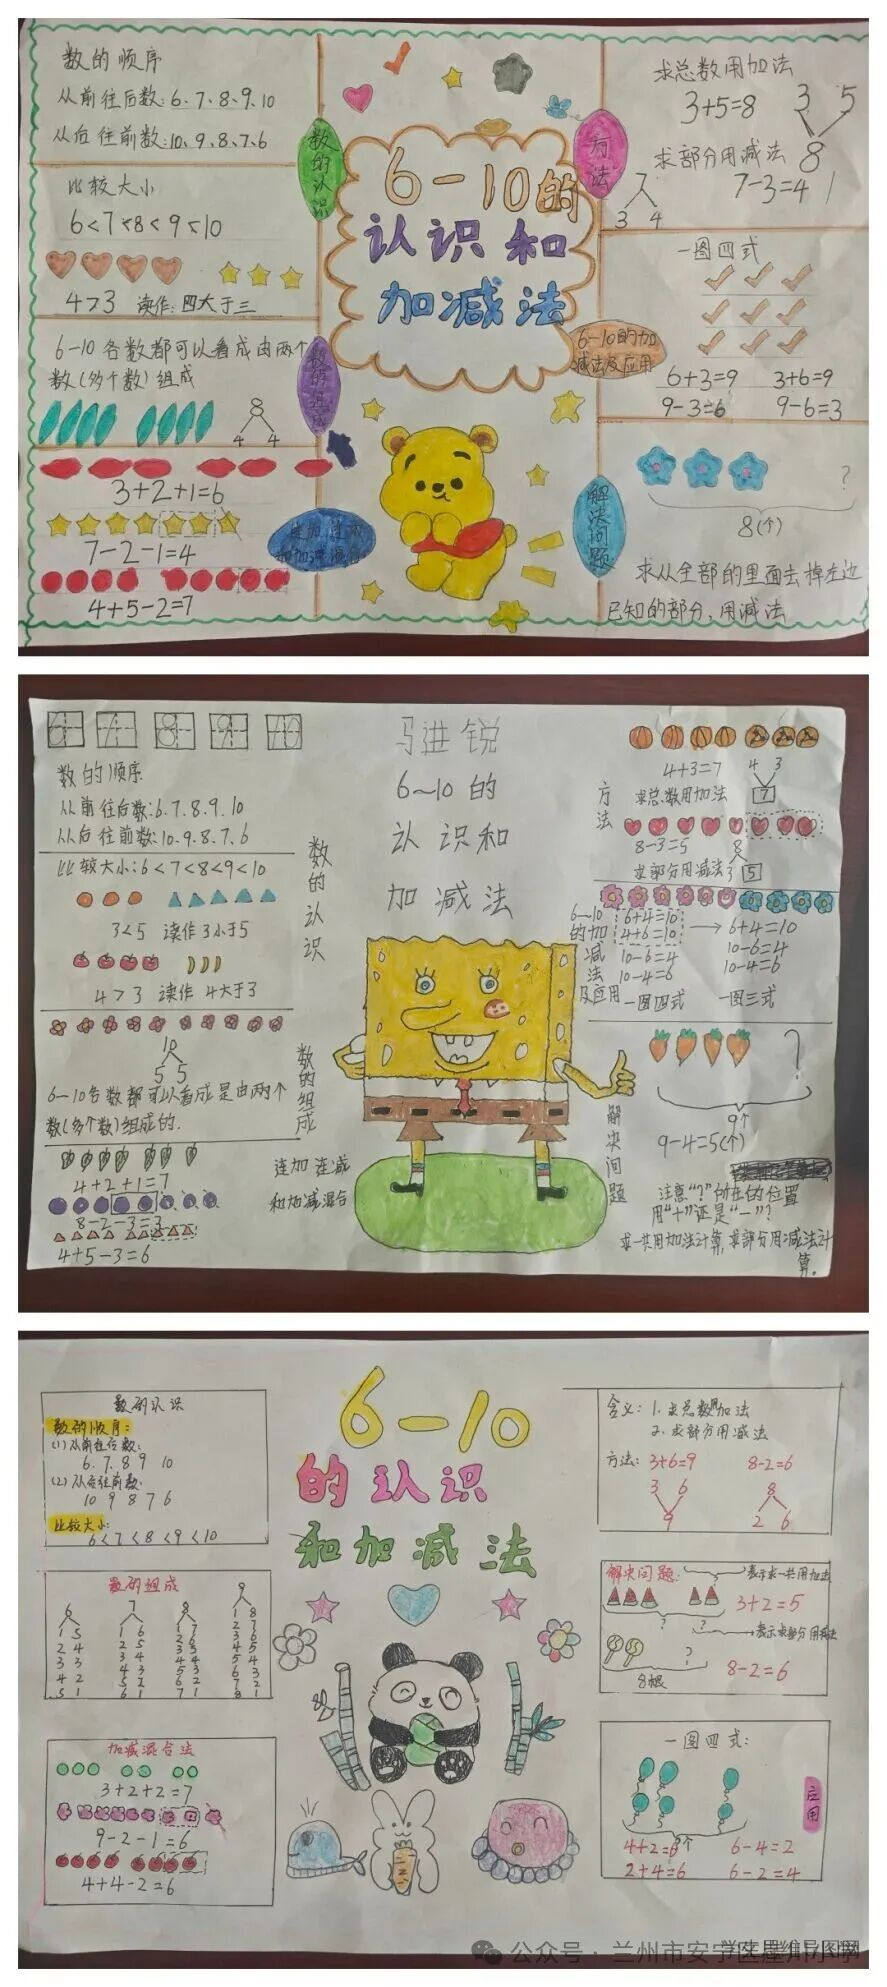 数的顺序
从前往后数:6、7、8、9、10
从后往前数:10、9、8、7、6
比较大小
6<7<8<9<10
4>3 读作:四大于三
6-10各数都可以看成由两个
数(多个数)组成
8
4 4
3+2+1=6
7-2-1=4
4+5-2=7
数的认识
数的组成
6-10的
认识和
加减法
方法
6-10的加
减法及应用
解决问题
求总数用加法
3+5=8
3 5
8
求部分用减法
7-3=4
7
3 4
一图四式
6+3=9 3+6=9
9-3=6 9-6=3
?
8(个)
求从全部的里面去掉左边
已知的部分,用减法
6 7 8 9 10
数的顺序
从前往后数:6.7.8.9.10
从后往前数:10.9.8.7.6
比较大小:6<7<8<9<10
3<5 读作3小于5
4>3 读作4大于3
10
5 5
6-10各数都可以看成是由两个
数(多个数)组成的.
4+2+1=7
8-2-3=3
4+5-3=6
数的认识
数的组成
连加 连减
和加减混合
马进锐
6~10的
认识和
加减法
方法
4+3=7
4 3
7
求总数用加法
8-3=5
8
3 5
求部分用减法
6~10
的加
减
法
及应用
6+4=10
4+6=10
10-6=4
10-4=6
一图四式
6+4=10
10-6=4
10-4=6
一图三式
解决问题
?
9个
9-4=5(个)
注意“?”所在的位置
用“+”还是“-”?
求一共用加法计算,求部分用减法计
算.
数的认识
数的顺序:
(1)从前往后数:
6.7.8 9 10
(2)从后往前数:
10 9 8 7 6
比较大小:
6<7<8<9<10
数的组成
6
1 5
2 4
3 3
4 2
5 1
7
1 6
2 5
3 4
4 3
5 2
6 1
8
1 7
2 6
3 5
4 4
5 3
6 2
7 1
9
1 8
2 7
3 6
4 5
5 4
6 3
7 2
8 1
加减混合法
3+2+2=7
9-2-1=6
4+4-2=6
6-10
的认识
和加减法
含义:1.求总数用加法
2.求部分用减法
方法:3+6=9 8-2=6
3 6
9
8
2 6
解决问题:
表示求一共用加法
?
3+2=5
表示求部分用减法
?
8根
8-2=6
一图四式:
?个
4+2=6 6-4=2
2+4=6 6-2=4
应用